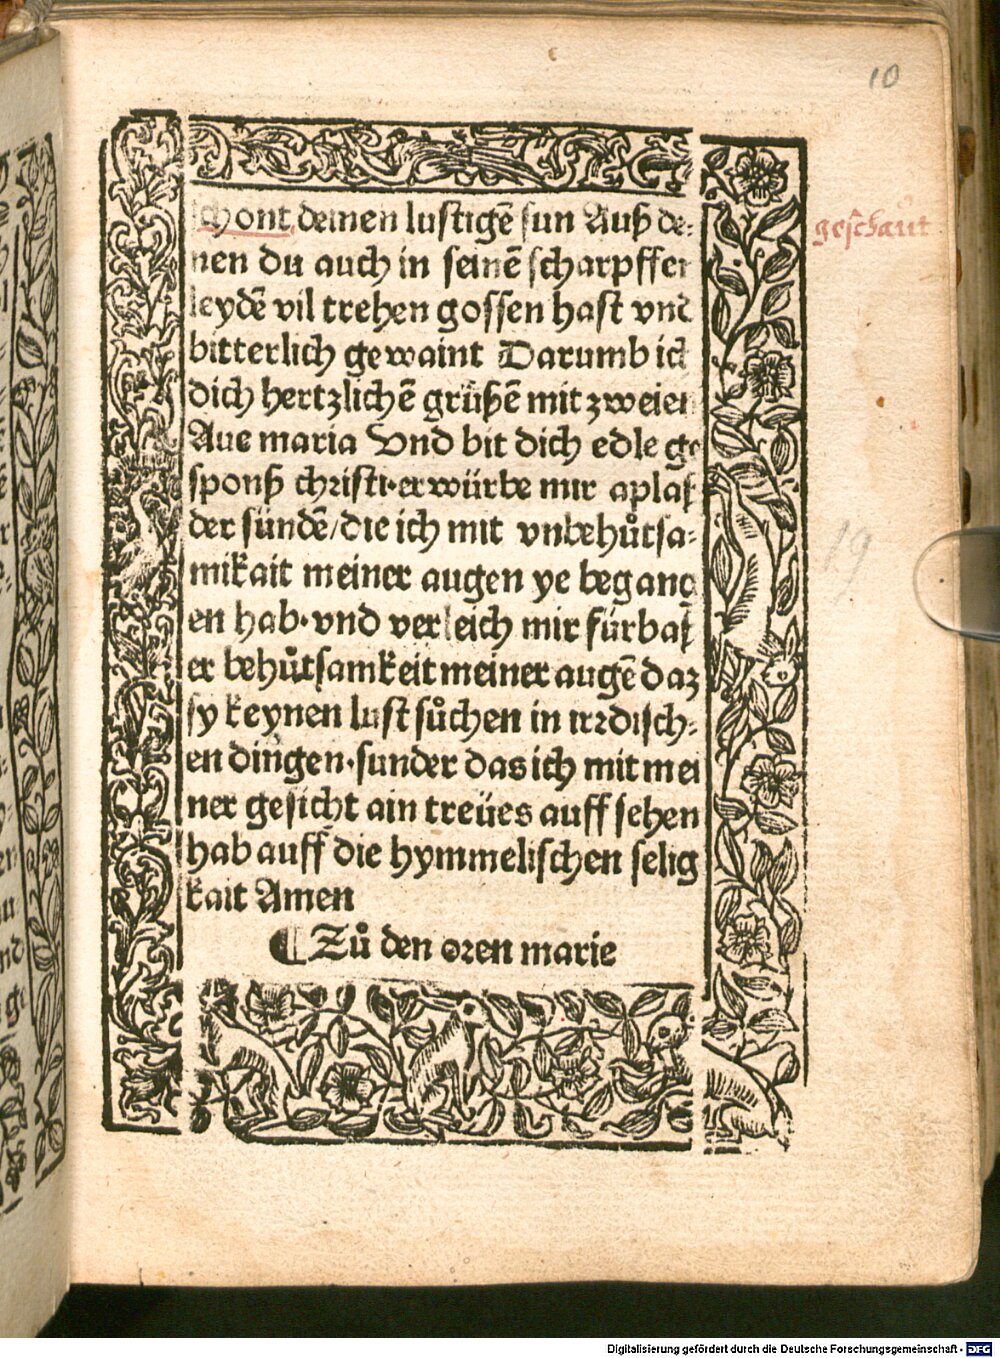 10
schont deinen lustigē sun Auß de⸗
nen du auch in seinē scharpffer
leydē vil trehen gossen hast vnd
bitterlich gewaint Darumb ich
dich hertzlichē grüßē mit zweien
Aue maria Vnd bit dich edle ge
sponß christi·erwürbe mir aplaß
der sündē/die ich mit vnbehůtsa⸗
mikait meiner augen ye begang
en hab·vnd verleich mir fürbaß
er behůtsamkeit meiner augē daz
sy keynen lust sůchen in irrdisch⸗
en dingen·sunder das ich mit mei
ner gesicht ain treües auff sehen
hab auff die hymmelischen selig
kait Amen
¶ Zů den oren marie
geschaut
19
Digitalisierung gefördert durch die Deutsche Forschungsgemeinschaft - DFG